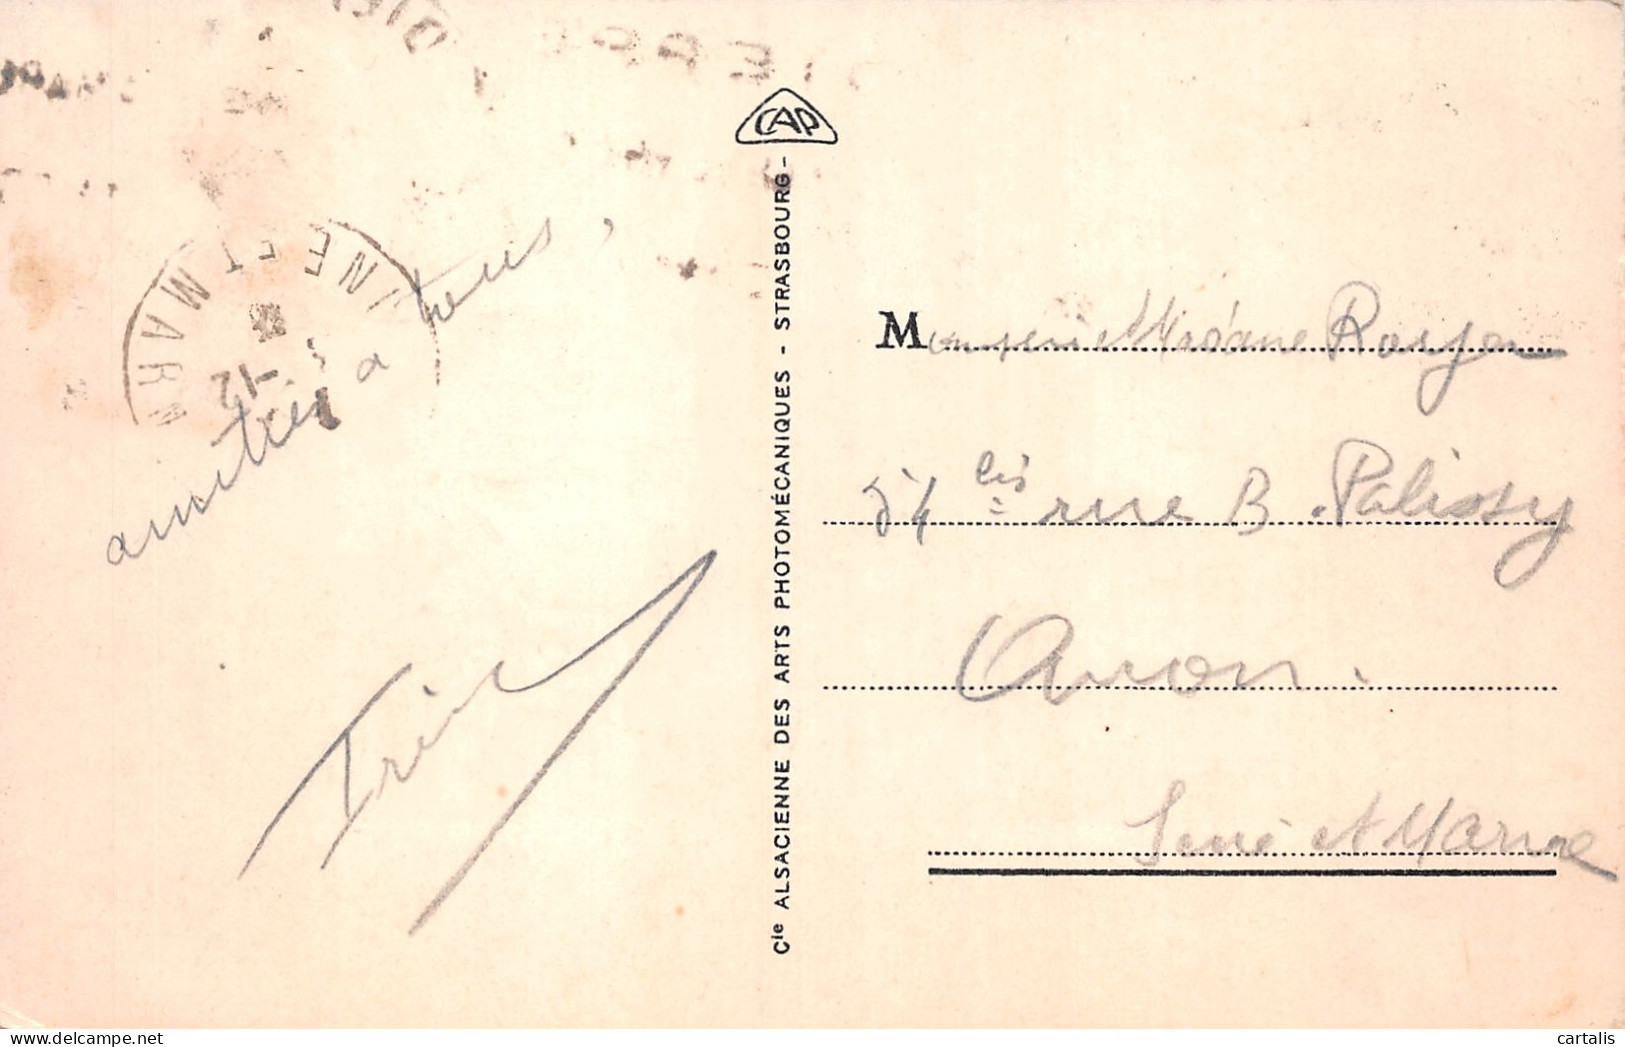 amitiés a tous,
CAP
Cie ALSACIENNE DES ARTS PHOTOMÉCANIQUES - STRASBOURG -
NE ET MARN
-12
Monsieur et Madame
54 bis rue B. Palissy
Avon.
Seine et Marne
cartalis
delcampe.net